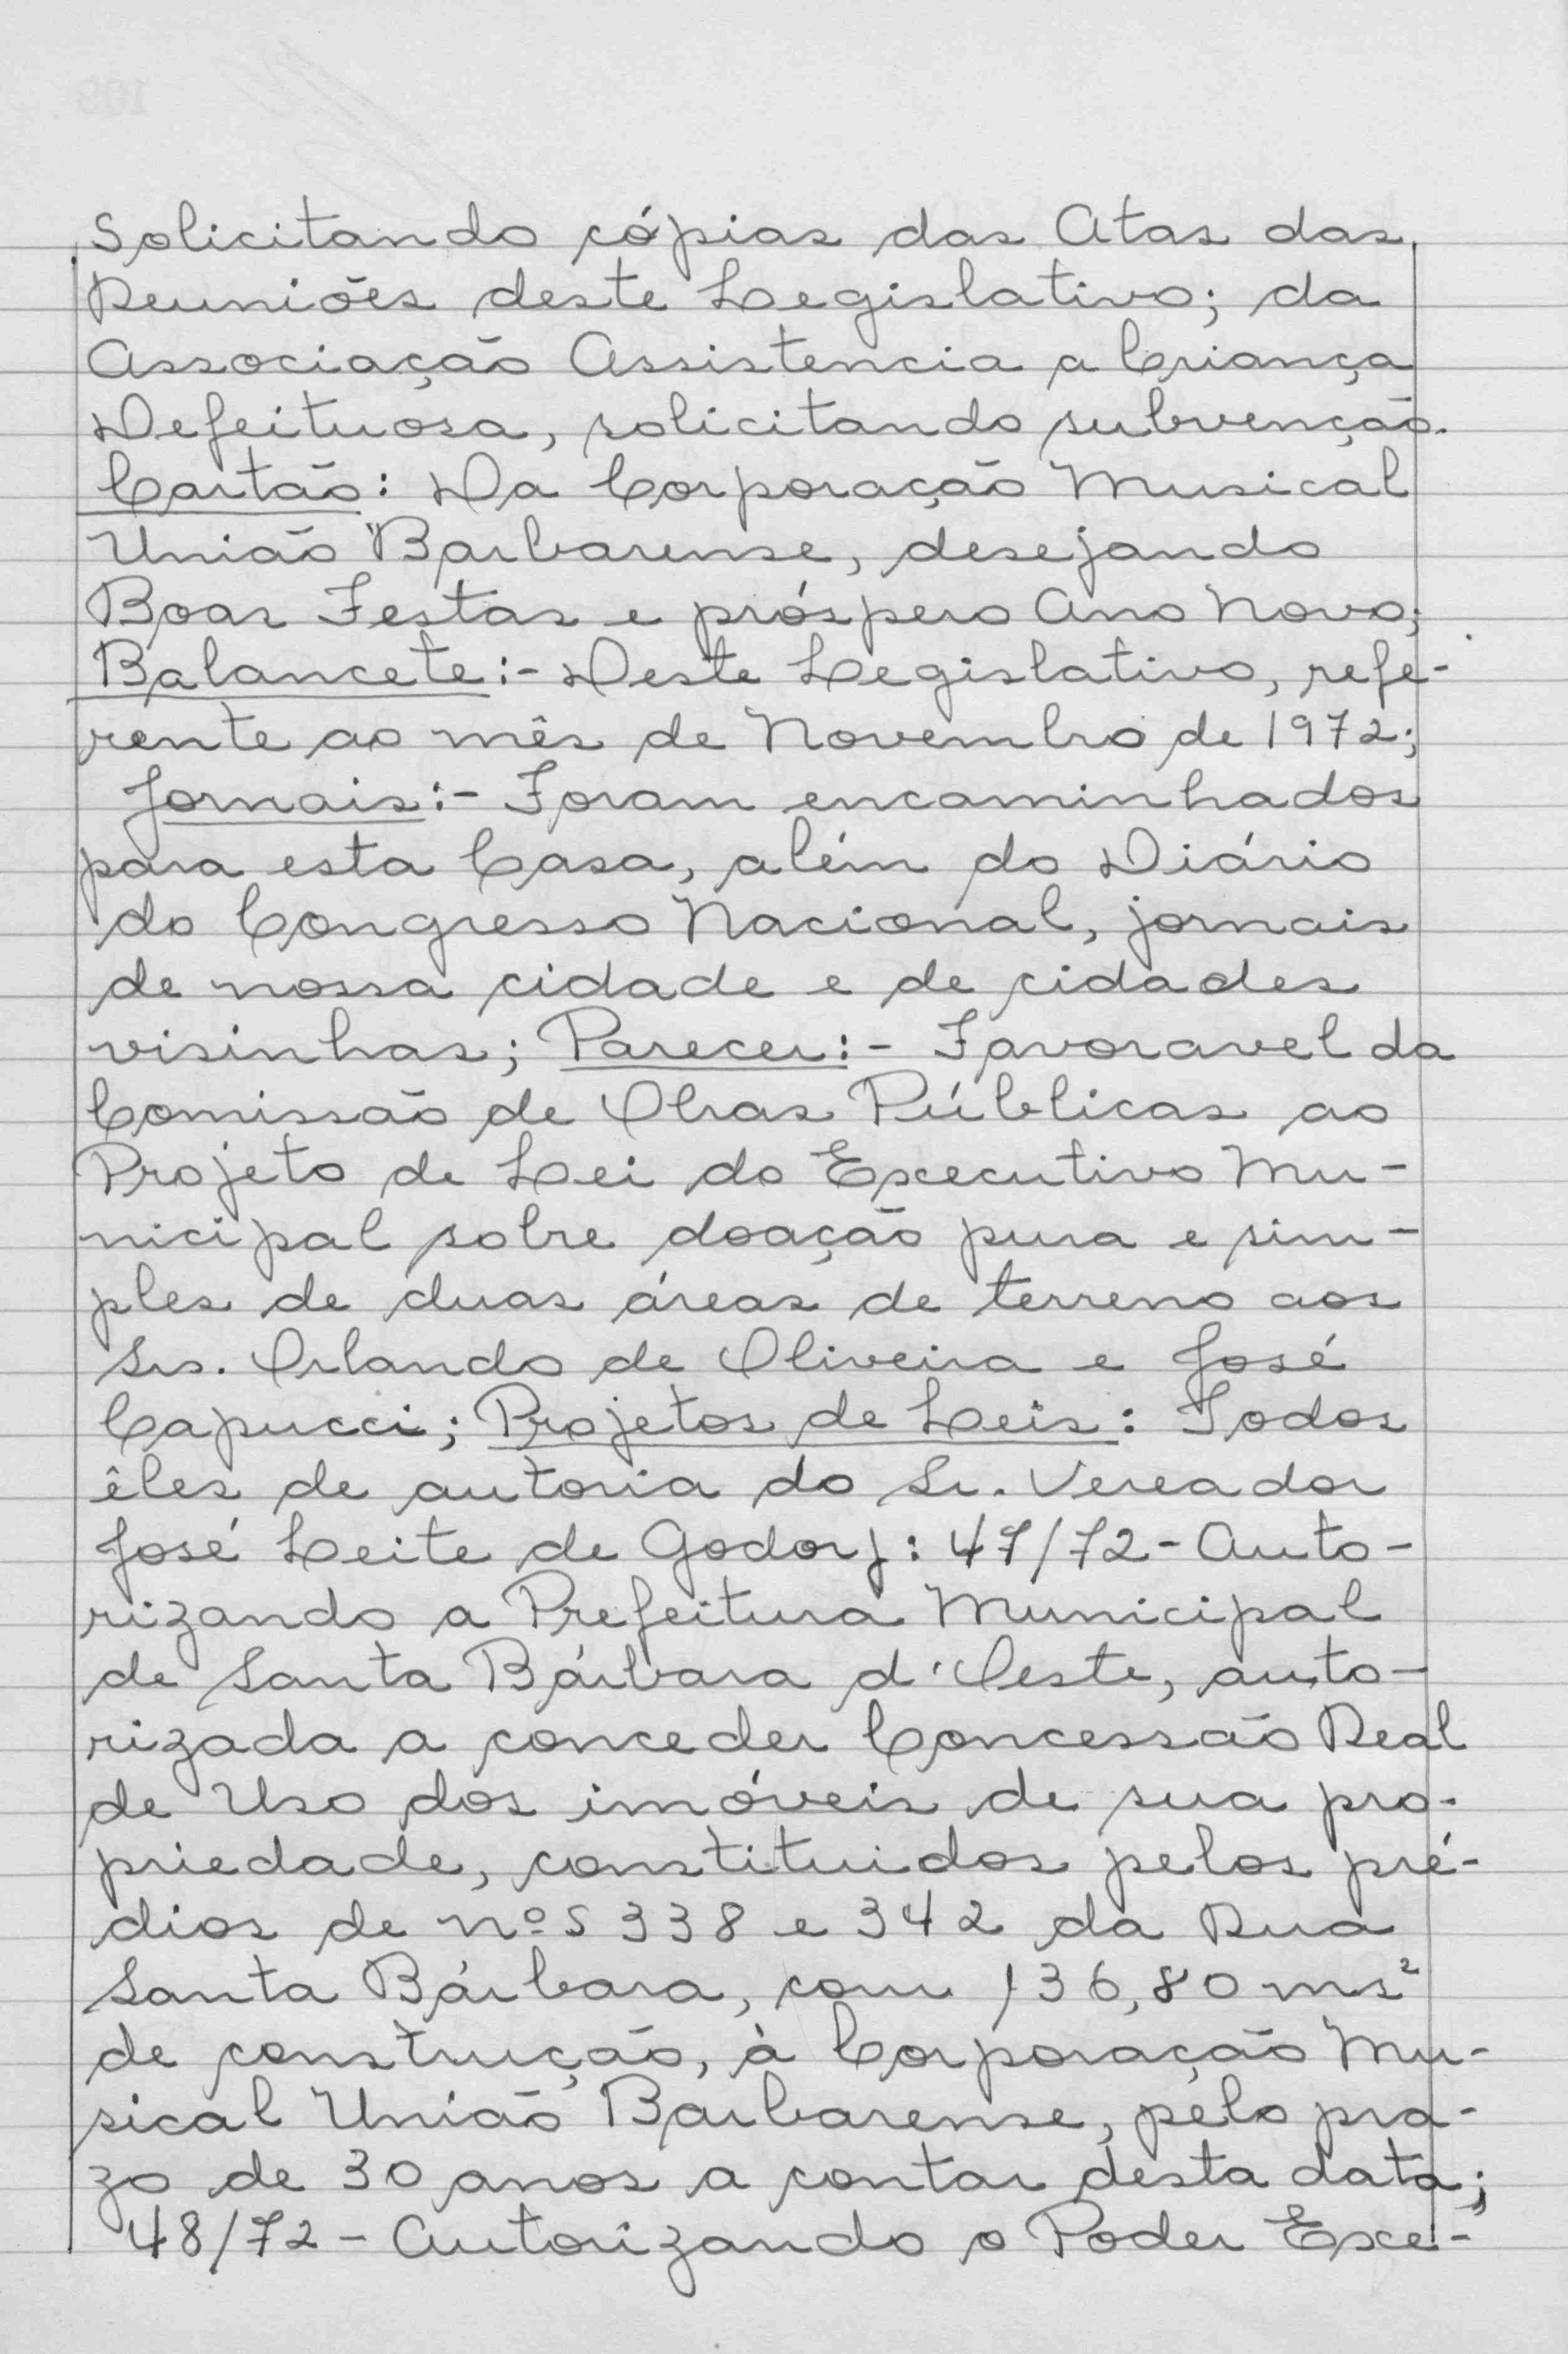 Solicitando cópias das Atas das
Reuniões deste Legislativo; da
Associação Assistencia a Criança
Defeituosa, solicitando subvenção.
Cartão: Da Corporação Musical
União "Barbarense, desejando
Boas Festas e próspero Ano Novo;
Balancete:- Deste Legislativo, refe-
rente ao mês de Novembro de 1972;
Jornais:- Foram encaminhados
para esta Casa, além do Diário
do Congresso Nacional, jornais
de nossa cidade e de cidades
visinhas; Parecer:- Favoravel da
Comissão de Obras Públicas ao
Projeto de Lei do Executivo Mu-
nicipal sobre doação pura e sim-
ples de duas áreas de terreno aos
Srs. Orlando de Oliveira e José
Capucci; Projetos de Leis: Todos
êles de autoria do Sr. Vereador
José Leite de Godoy: 47/72- Auto-
rizando a Prefeitura Municipal
de Santa Bárbara d'Oeste, auto-
rizada a conceder Concessão Real
de Uso dos imóveis de sua pro-
priedade, constituidos pelos pré-
dios de nºs 338 e 342 da Rua
Santa Bárbara, com 136,80 ms²
de construção, à Corporação Mu-
sical União Barbarense, pelo pra-
zo de 30 anos a contar desta data;
48/72 - Autorizando o Poder Exe-